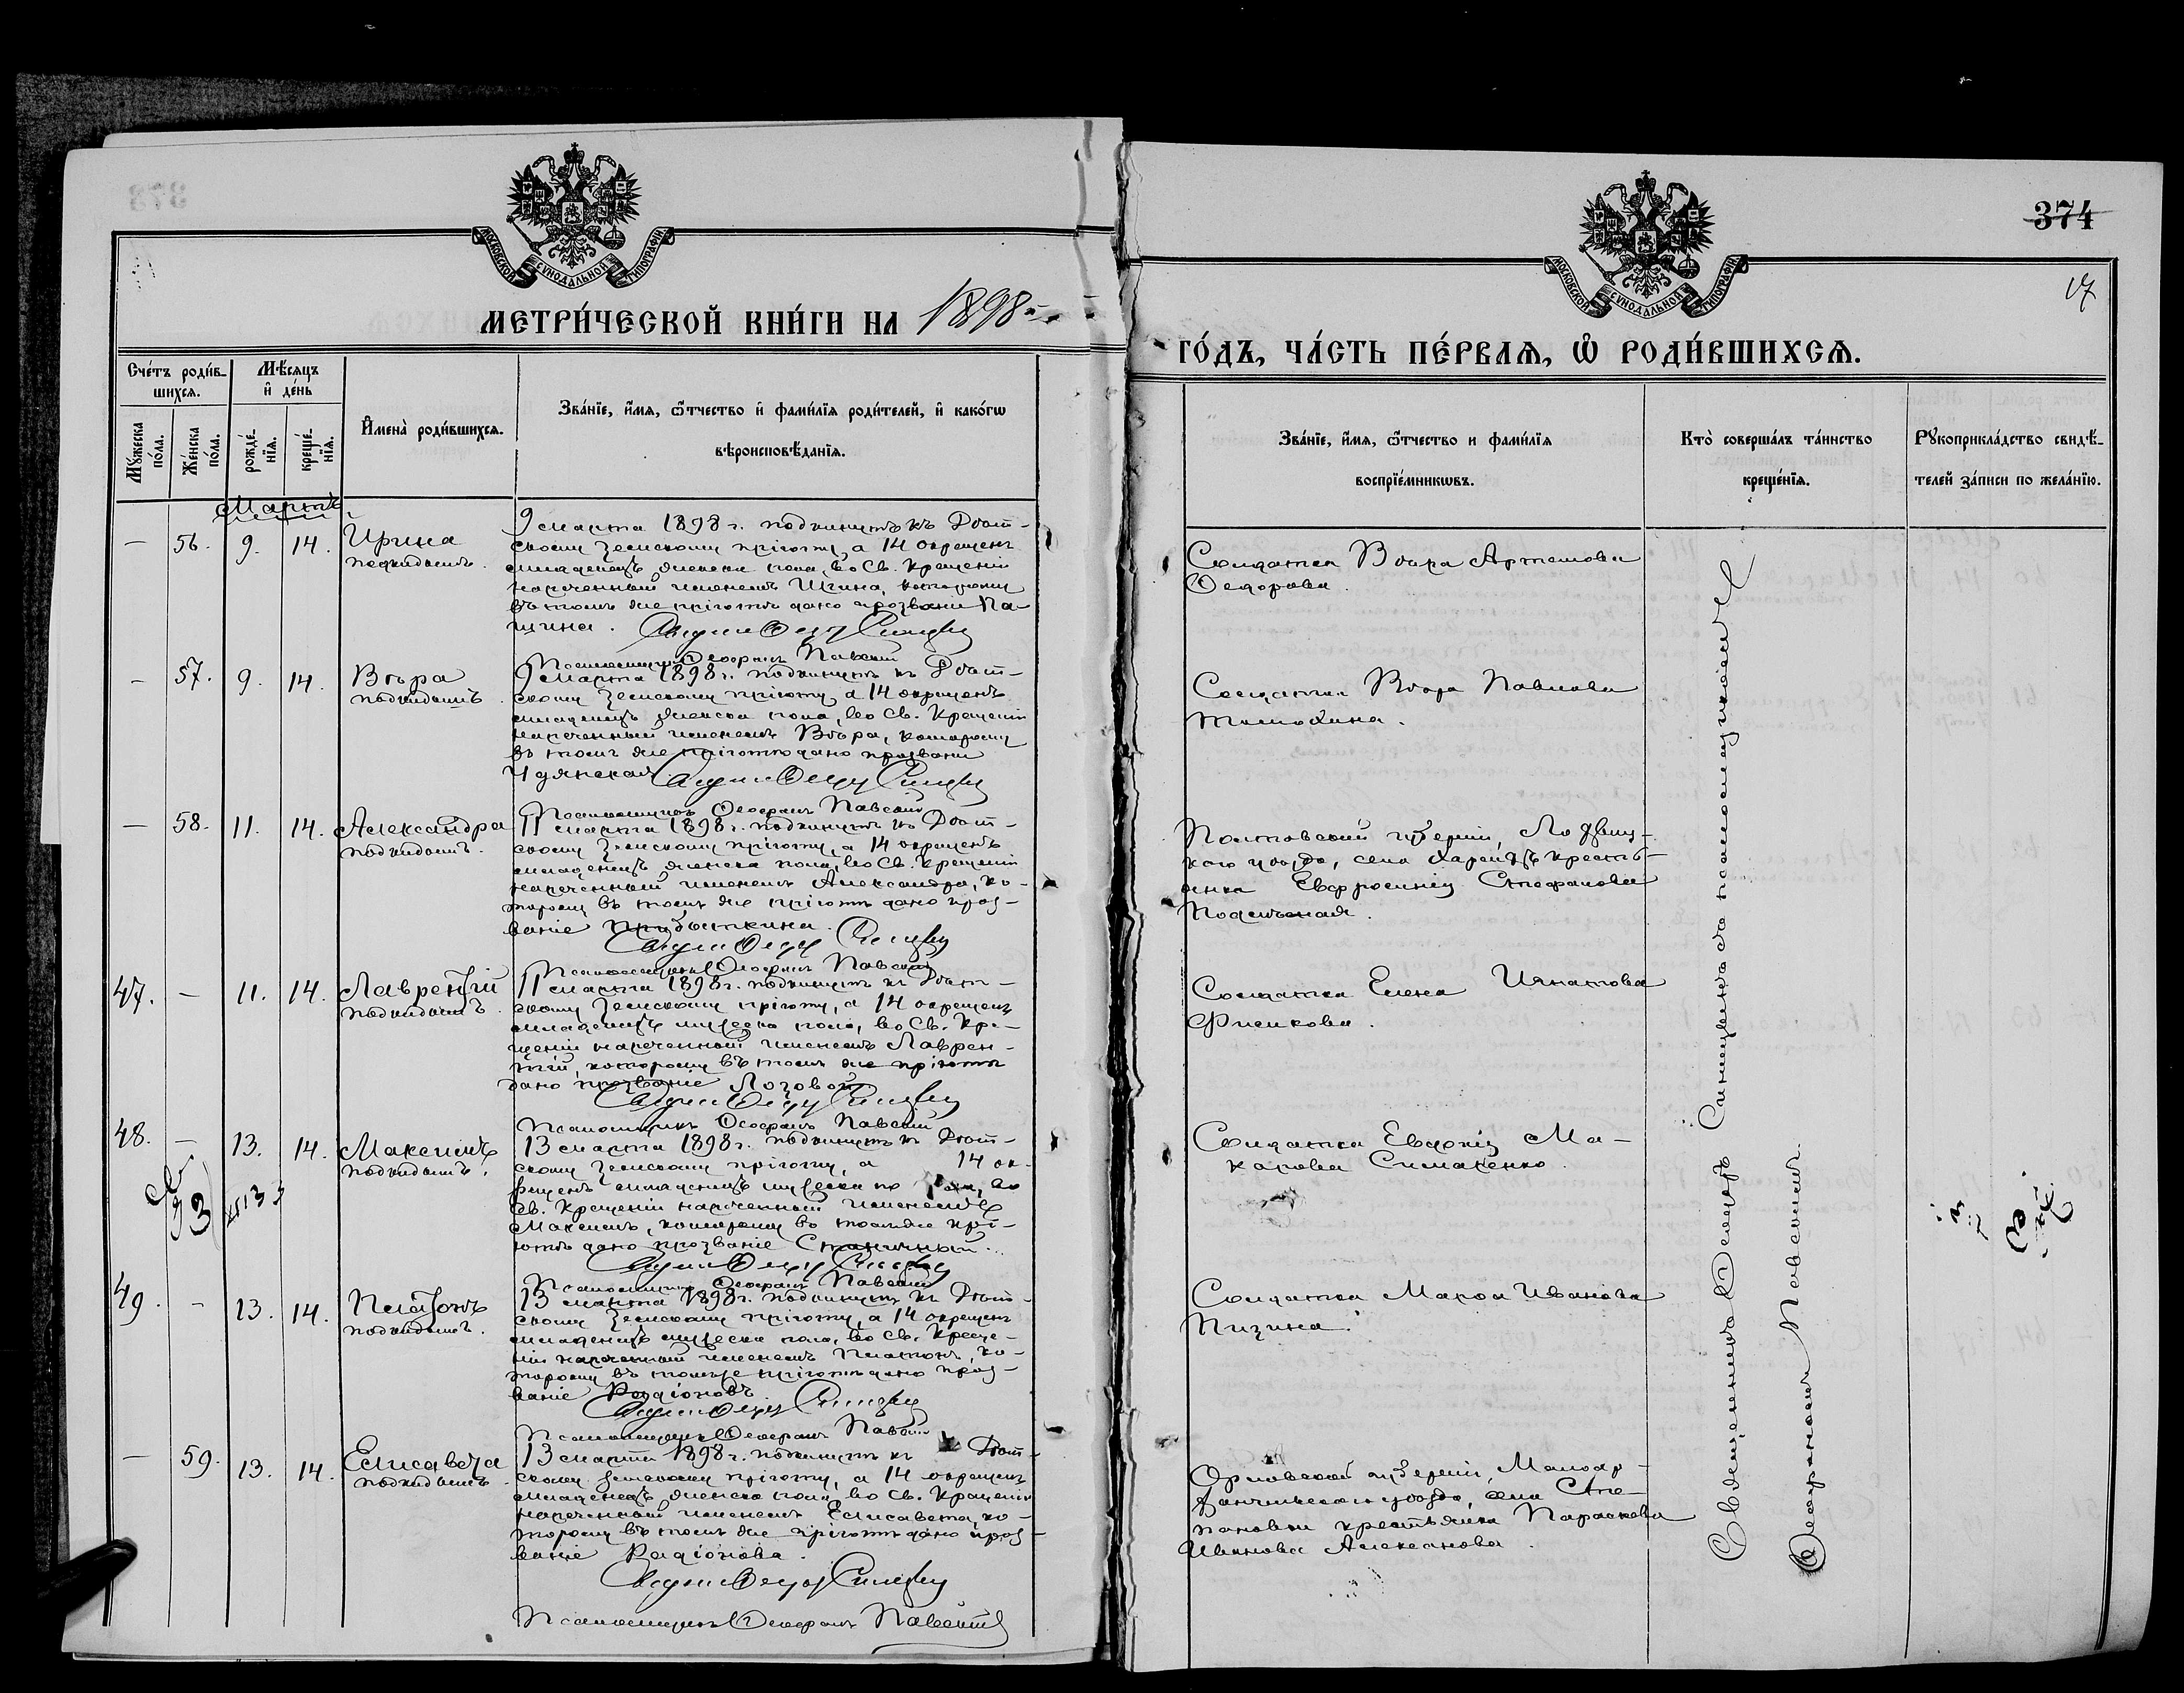 374
17
МОСКОВСКОЙ СѴНОДАЛЬНОЙ ТИПОГРАФІИ
МОСКОВСКОЙ СѴНОДАЛЬНОЙ ТИПОГРАФІИ
МЕТРИ́ЧЕСКОЙ КНИ́ГИ НА 1898
ГО́ДЪ, ЧА́СТЬ ПЕ́РВАѦ, Ѡ҆ РОДИ́ВШИХСѦ.
Сче́тъ роди́в-
шихсѧ.
Мꙋ́жеска по́ла.
Же́нска по́ла.
Мѣ́сѧцъ
и҆ де́нь
рожде́-
нїѧ.
креще́-
нїѧ.
И҆мена̀ роди́вшихсѧ.
Зва́нїе, и҆́мѧ, ѻ҆́тчество и҆ фами́лїѧ роди́телей, и҆ како́гѡ
вѣроисповѣ́данїѧ.
Зва́нїе, и҆́мѧ, ѻ҆́тчество и фами́лїѧ
воспрїе́мникѡвъ.
Кто̀ соверша́лъ та́инство
креще́нїѧ.
Рꙋкоприкла́дство свидѣ́-
телей за́писи по жела́нїю.
Мартъ
— 56. 9. 14. Ирина
подкидышъ.
9 марта 1898 г. подкинутъ къ Дѣт-
скому Земскому пріюту, а 14 окрещенъ
младенецъ женска пола, во Св. Крещеніи
нареченный именемъ Ирина, которому
въ томъ же пріютѣ дано прозвани Па-
щина.
Псаломщикъ Ѳеофанъ Павскій
Солдатка Вѣра Артемова
Ѳедорова.
— 57. 9. 14. Вѣра
подкидышъ.
9 марта 1898 г. подкинутъ къ Дѣт-
скому Земскому пріюту, а 14 окрещенъ
младенецъ женска пола, во Св. Крещеніи
нареченный именемъ Вѣра, которому
въ томъ же пріютѣ дано прозвани
Псаломщикъ Ѳеофанъ Павскій
Солдатка Вѣра Павлова
Тимохина.
— 58. 11. 14. Александра
подкидышъ.
11 марта 1898 г. подкинутъ къ Дѣт-
скому Земскому пріюту, а 14 окрещенъ
младенецъ женска пола, во Св. Крещеніи
нареченный именемъ Александра, ко-
торому въ томъ же пріютѣ дано проз-
ваніе Прибыткина.
Псаломщикъ Ѳеофанъ Павскій
Полтавской губерніи,
кого уѣзда, села кресть-
янка Евфросинія Стефанова
47. — 11. 14. Лаврентій
подкидышъ.
11 марта 1898 г. подкинутъ къ Дѣт-
скому Земскому пріюту, а 14 окрещенъ
младенецъ мужеска пола, во Св. Кре-
щеніи нареченный именемъ Лаврен-
тій, которому въ томъ же пріютѣ
дано прозваніе Лозовой
Псаломщикъ Ѳеофанъ Павскій
Солдатка Елена Игнатова
48. — 13. 14. Максимъ
подкидышъ.
13 марта 1898 г. подкинутъ къ Дѣт-
скому Земскому пріюту, а 14 ок-
рещенъ младенецъ мужеска пола, во
Св. Крещеніи нареченный именемъ
Максимъ, которому въ томъ же прі-
ютѣ дано прозваніе Станичный.
Псаломщикъ Ѳеофанъ Павскій
Солдатка Евдокія Ма-
карова Симаненко.
49. — 13. 14. Платонъ
подкидышъ.
13 марта 1898 г. подкинутъ къ Дѣт-
скому Земскому пріюту, а 14 окрещенъ
младенецъ мужеска пола, во Св. Креще-
ніи нареченный именемъ Платонъ, ко-
торому въ томъ же пріютѣ дано проз-
ваніе Родіоновъ
Псаломщикъ Ѳеофанъ Павскій
Солдатка Марѳа Иванова
Пизина.
— 59. 13. 14. Елисавета
подкидышъ.
13 марта 1898 г. подкинутъ къ Дѣт-
скому Земскому пріюту, а 14 окрещенъ
младенецъ женска пола, во Св. Крещеніи
нареченный именемъ Елисавета, ко-
торому въ томъ же пріютѣ дано проз-
ваніе Родіонова.
Псаломщикъ Ѳеофанъ Павскій
Орловской губерніи, Малоар-
хангельскаго уѣзда, села Сте-
пановки крестьянка Параскева
Иванова Алексанова.
Священникъ Ѳеодоръ съ псаломщикомъ
Ѳеофаномъ Павскимъ.